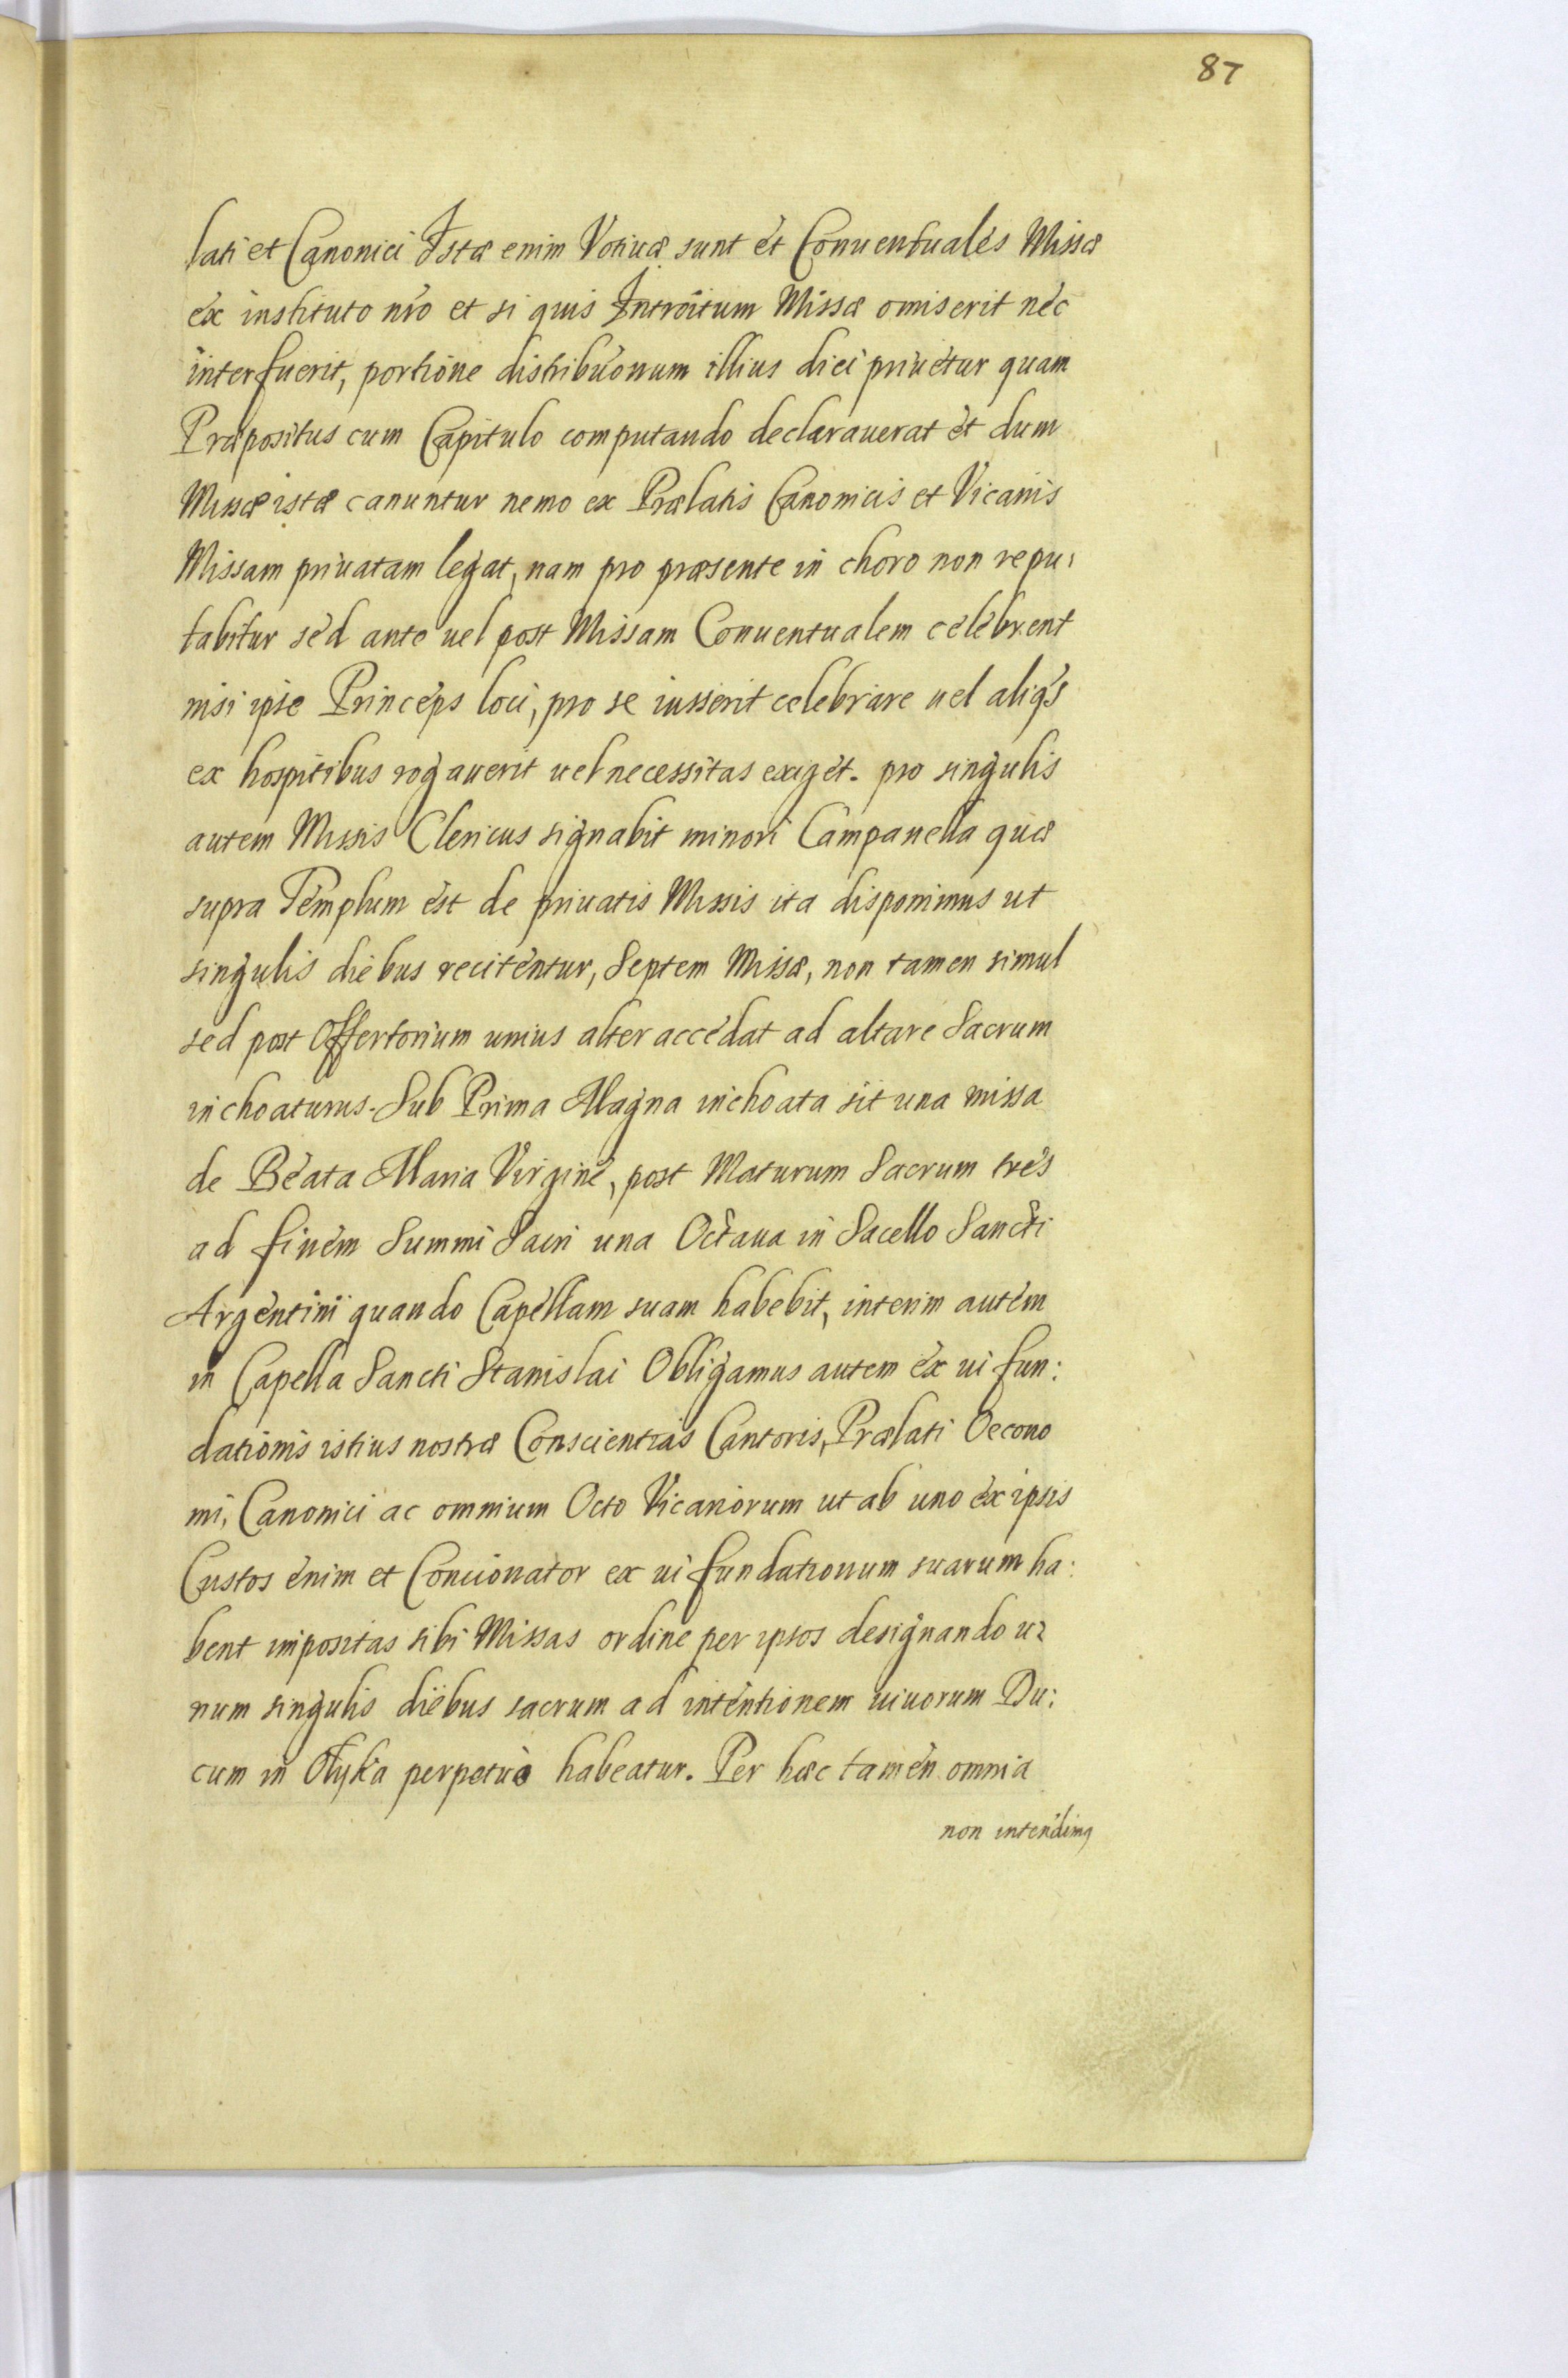 87
lati et Canonici Istæ enim Votiuæ sunt et Conuentuales Missæ
ex instituto nr̃o et si quis Introitum Missæ omiserit nec
interfuerit, portione distribuõnum illius diei priuetur quam
Præpositus cum Capitulo computando declarauerat et dum
Missæ istæ canuntur nemo ex Prælatis Canonicis et Vicariis
Missam priuatam legat, nam pro præsente in choro non repu:
tabitur sed ante uel post Missam Conuentualem celebrent
nisi ipse Princeps loci, pro se iusserit celebrare uel aliqs
ex hospitibus rogauerit uel necessitas exiget. pro singulis
autem Missis Clericus signabit minori Campanella quæ
supra Templum est de priuatis Missis ita disponimus ut
singulis diebus recitentur, Septem Missæ, non tamen simul
sed post Offertorium unius alter accedat ad altare Sacrum
inchoaturus. Sub Prima Magna inchoata sit una missa
de Beata Maria Virgine, post Maturum Sacrum tres
ad finem Summi Sacri una Octaua in Sacello Sancti
Argentini quando Capellam suam habebit, interim autem
in Capella Sancti Stanislai Obligamus autem ex ui fun:
dationis istius nostræ Conscientias Cantoris, Prælati Oecono
mi, Canonici ac omnium Octo Vicariorum ut ab uno ex ipsis
Custos enim et Concionator ex ui fundationum suarum ha:
bent impositas sibi Missas ordine per ipsos designando u:
num singulis diebus sacrum ad intentionem uiuorum Du:
cum in Ołyka perpetuò habeatur. Per hæc tamen omnia
non intendimꝯ